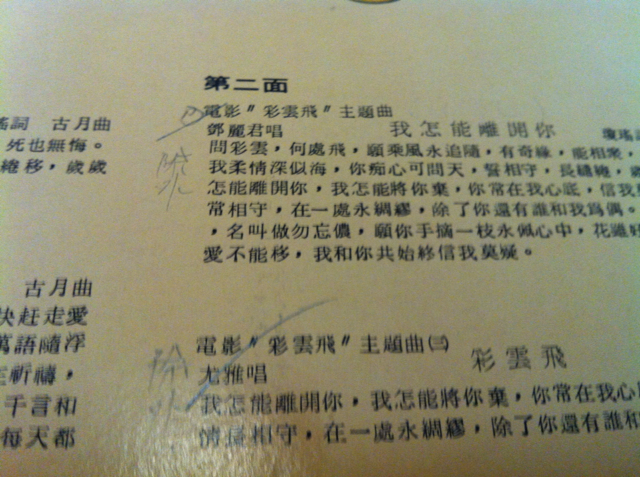 第二面
電影〝彩雲飛〞主題曲
鄧麗君唱 我怎能離開你 瓊瑤
問彩雲,何處飛,願乘風永追隨,有奇緣,能相聚,
我柔情深似海,你痴心可問天,誓相守,長繾綣,
怎能離開你,我怎能將你棄,你常在我心底,信我
常相守,在一處永綢繆,除了你還有誰和我為偶。
,名叫做勿忘儂,願你手摘一枝永佩心中,花雖
愛不能移,我和你共始終信我莫疑。
電影〝彩雲飛〞主題曲㈢
尤雅唱 彩雲飛
我怎能離開你,我怎能將你棄,你常在我心
情長相守,在一處永綢繆,除了你還有誰和
瑤詞 古月曲
死也無悔。
緯移,歲歲
古月曲
快赶走愛
萬語隨浮
在祈禱,
千言和
每天都